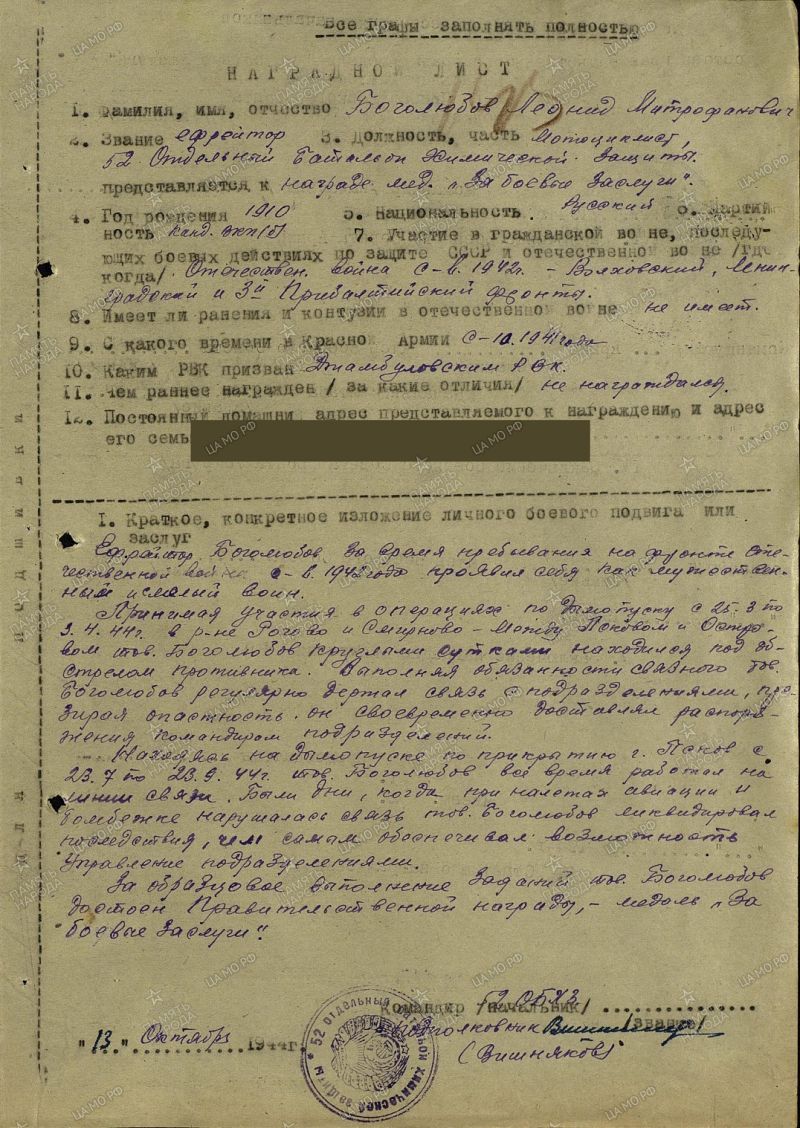 Все графы заполнять полностью
НАГРАДНОЙ ЛИСТ
1. Фамилия, имя, отчество Боголюбов Леонид Митрофанович
2. Звание ефрейтор 3. Должность, часть Мотоциклист,
52 Отдельный Батальон Химической Защиты.
представляется к награде мед. "За боевые заслуги".
4. Год рождения 1910 5. Национальность Русский 6. Партий
ность канд. вкп(б) 7. Участие в гражданской во не, последу-
ющих боевых действиях по защите СССР и отечественной во не /где
когда/. Отечествен. война с - 1942г. - Волховский, Ленин-
градский и 3й Прибалтийский фронты.
8. Имеет ли ранения и контузии в отечественной во не не имеет.
9. С какого времени в Красно Армии С-10.1941года
10. Каким РВК призван Джамбуловским РВК.
11. Чем раннее награжден / за какие отличия/ не награждался.
12. Постоянный домашни адрес представляемого к награждению и адрес
его семь
I. Краткое, конкретное изложение личного боевого подвига или
заслуг
Ефрейтор Боголюбов за время пребывания на фронте оте-
чественной войны с - 1942года проявил себя как мужествен-
ный и смелый воин.
Принимая участия в операциях по дымопуску с 25.3 по
9.4.44г. в р-не Рогово и Смирново - между Псковом и Остро-
вом тов. Боголюбов круглыми сутками находился под об-
стрелом противника. Выполняя обязанности связного тов.
Боголюбов регулярно держал связь с подразделениями, пре-
зирая опастность он своевременно доставлял распоря-
жения командирам подразделений.
Находясь на дымопуске по прикрытию г. Псков с
23.7 по 23.9.44г. тов. Боголюбов всё время работал на
линии связи. Были дни, когда при налетах авиации и
бомбежке нарушалась связь тов. Боголюбов ликвидировал
последствия, чем самым обеспечивал возможность
управление подразделениями.
За образцовое выполнение заданий тов. Боголюбов
достоен Правительственной награды, - медаль "За
боевые заслуги".
Командир /начальник/ 52 ОБХЗ
Подполковник /звание/
"13" Октября 1944г.
(Вишняков)
52 ОТДЕЛЬНЫЙ ХИМИЧЕСКОЙ ЗАЩИТЫ
ПОДШИВКИ
ДЛЯ
ПАМЯТЬ НАРОДА
ЦА МО РФ